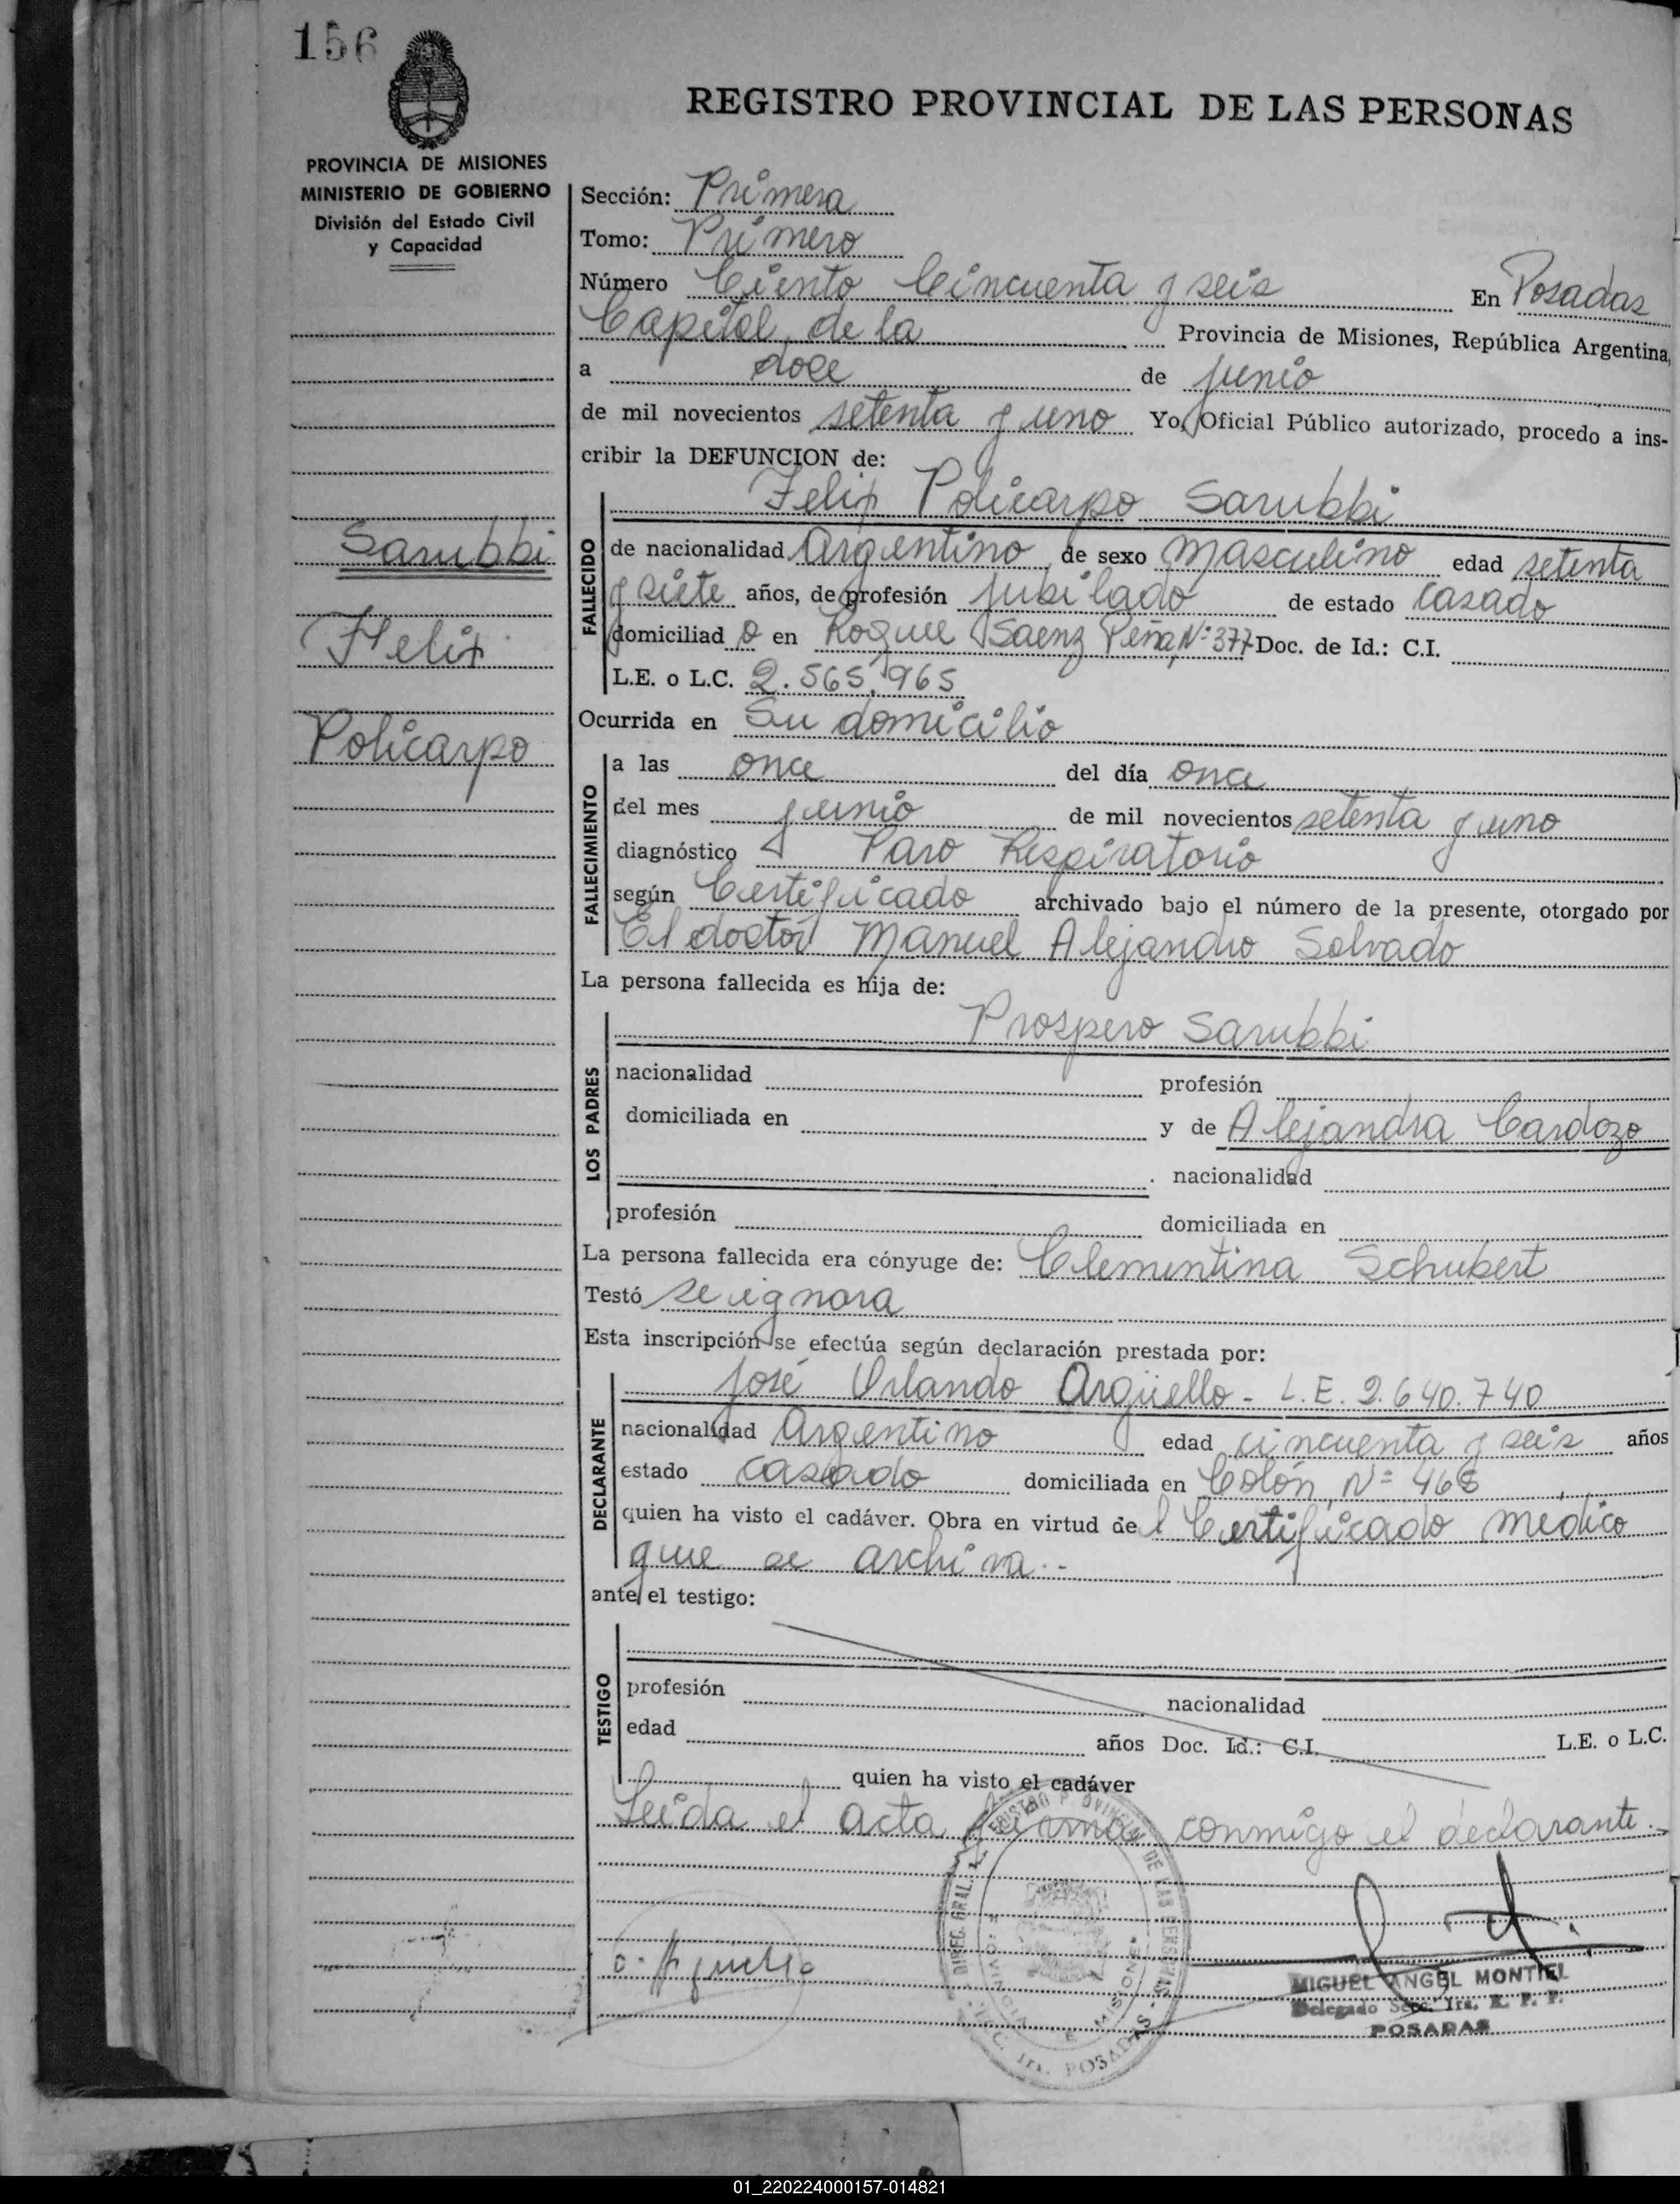 156
REGISTRO PROVINCIAL DE LAS PERSONAS
PROVINCIA DE MISIONES
MINISTERIO DE GOBIERNO
División del Estado Civil
y Capacidad
Sección: Primera
Tomo: Primero
Número Ciento Cincuenta y seis En Posadas
Capital de la Provincia de Misiones, República Argentina,
a doce de junio
de mil novecientos setenta y uno Yo, Oficial Público autorizado, procedo a ins-
cribir la DEFUNCION de:
Sarubbi
Felix
Policarpo
FALLECIDO
Felix Policarpo Sarubbi
de nacionalidad Argentino de sexo masculino edad setenta
y siete años, de profesión jubilado de estado casado
domiciliad o en Roque Saenz Peña, Nº 377 Doc. de Id.: C.I.
L.E. o L.C. 2.565.965
Ocurrida en Su domicilio
FALLECIMIENTO
a las once del día once
del mes junio de mil novecientos setenta y uno
diagnóstico Paro Respiratorio
según Certificado archivado bajo el número de la presente, otorgado por
El doctor Manuel Alejandro Solvado
La persona fallecida es hija de:
LOS PADRES
Prospero Sarubbi
nacionalidad profesión
domiciliada en y de Alejandra Cardozo
nacionalidad
profesión domiciliada en
La persona fallecida era cónyuge de: Clementina Schubert
Testó se ignora
Esta inscripción se efectúa según declaración prestada por:
DECLARANTE
José Orlando Argüello - L.E. 2.640.740
nacionalidad Argentino edad cincuenta y seis años
estado casado domiciliada en Colón, Nº
quien ha visto el cadáver. Obra en virtud de l Certificado medico
que se archiva.-
ante el testigo:
TESTIGO
profesión nacionalidad
edad años Doc. Id.: C.I. L.E. o L.C.
quien ha visto el cadáver
Leida el acta firma conmigo el declarante.-
DIREC. GRAL. REGISTRO PROVINCIAL DE LAS PERSONAS
PROVINCIA DE MISIONES
SECC. 1ra. POSADAS
MIGUEL ANGEL MONTIEL
Delegado Secc. 1ra. R. P. P.
POSADAS
01_220224000157-014821